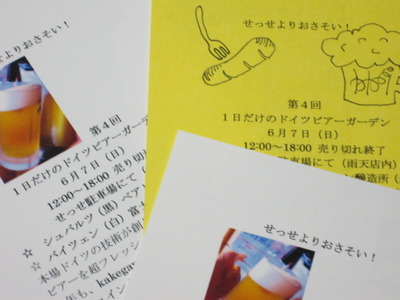 せっせよりおさそい！
第４回
１日だけのドイツビアーガーデン
６月７日（日）
12:00～18:00 売り切れ終了
駐車場にて（雨天店内）
醸造所
せよりおさそい！
第４回
１日だけのドイツビアーガーデン
６月７日（日）
12:00～18:00 売り切れ
せっせ駐車場にて（
☆ シュバルツ（黒）ベアレ
☆ バイツェン（白）富士
本場ドイツの技術が創
ビアーを超フレッシ
年も、kakega
イン
せっせよりおさそい！
第